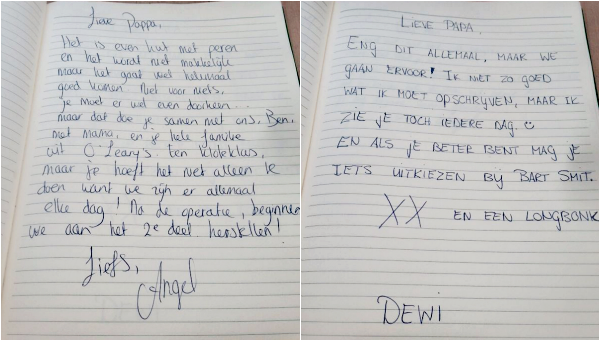 Lieve Pappa,
Het is even kut met peren
en het wordt niet makkelijk
maar het gaat wel helemaal
goed komen. Niet voor niets,
je moet er wel even doorheen...
maar dat doe je samen met ons, Ben,
met mama, en je hele familie
uit O'Leary's ten
maar je hoeft het niet alleen te
doen want we zijn er allemaal
elke dag! Na de operatie, beginnen
we aan het 2e deel herstellen!
Liefs,
Angel
LIEVE PAPA,
ENG DIT ALLEMAAL, MAAR WE
GAAN ERVOOR! IK NIET ZO GOED
WAT IK MOET OPSCHRIJVEN, MAAR IK
ZIE JE TOCH IEDERE DAG.
EN ALS JE BETER BENT MAG JE
IETS UITKIEZEN BIJ BART SMIT.
XX EN EEN LONGBONK
DEWI